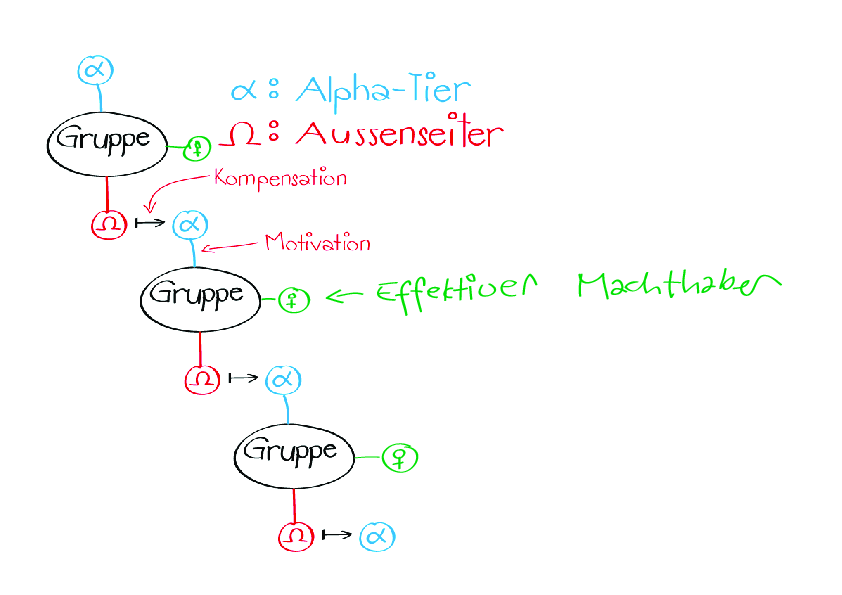 α
α: Alpha-Tier
Gruppe
♀
Ω: Aussenseiter
Kompensation
Ω ↦ α
Motivation
Gruppe
♀ ← Effektiver Machthaber
Ω ↦ α
Gruppe
♀
Ω ↦ α